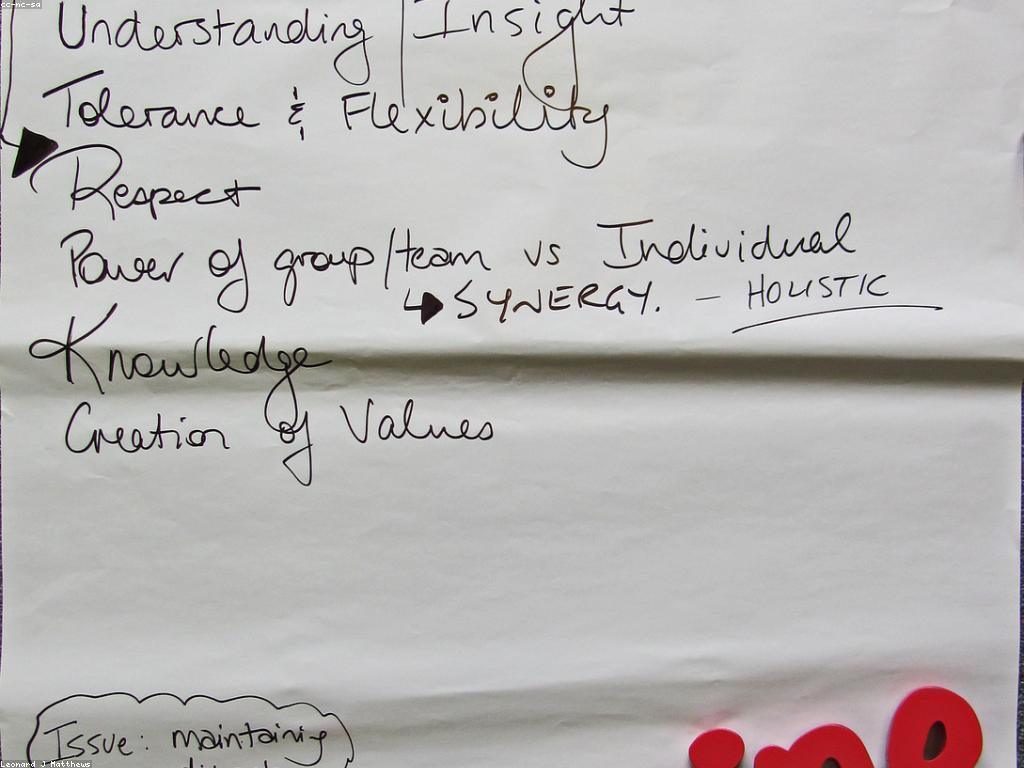 cc-nc-sa
Understanding | Insight
Tolerance & Flexibility
Respect
Power of group/team vs Individual
↳ SYNERGY. — HOLISTIC
Knowledge
Creation of Values
Issue: maintaining
Leonard J Matthews